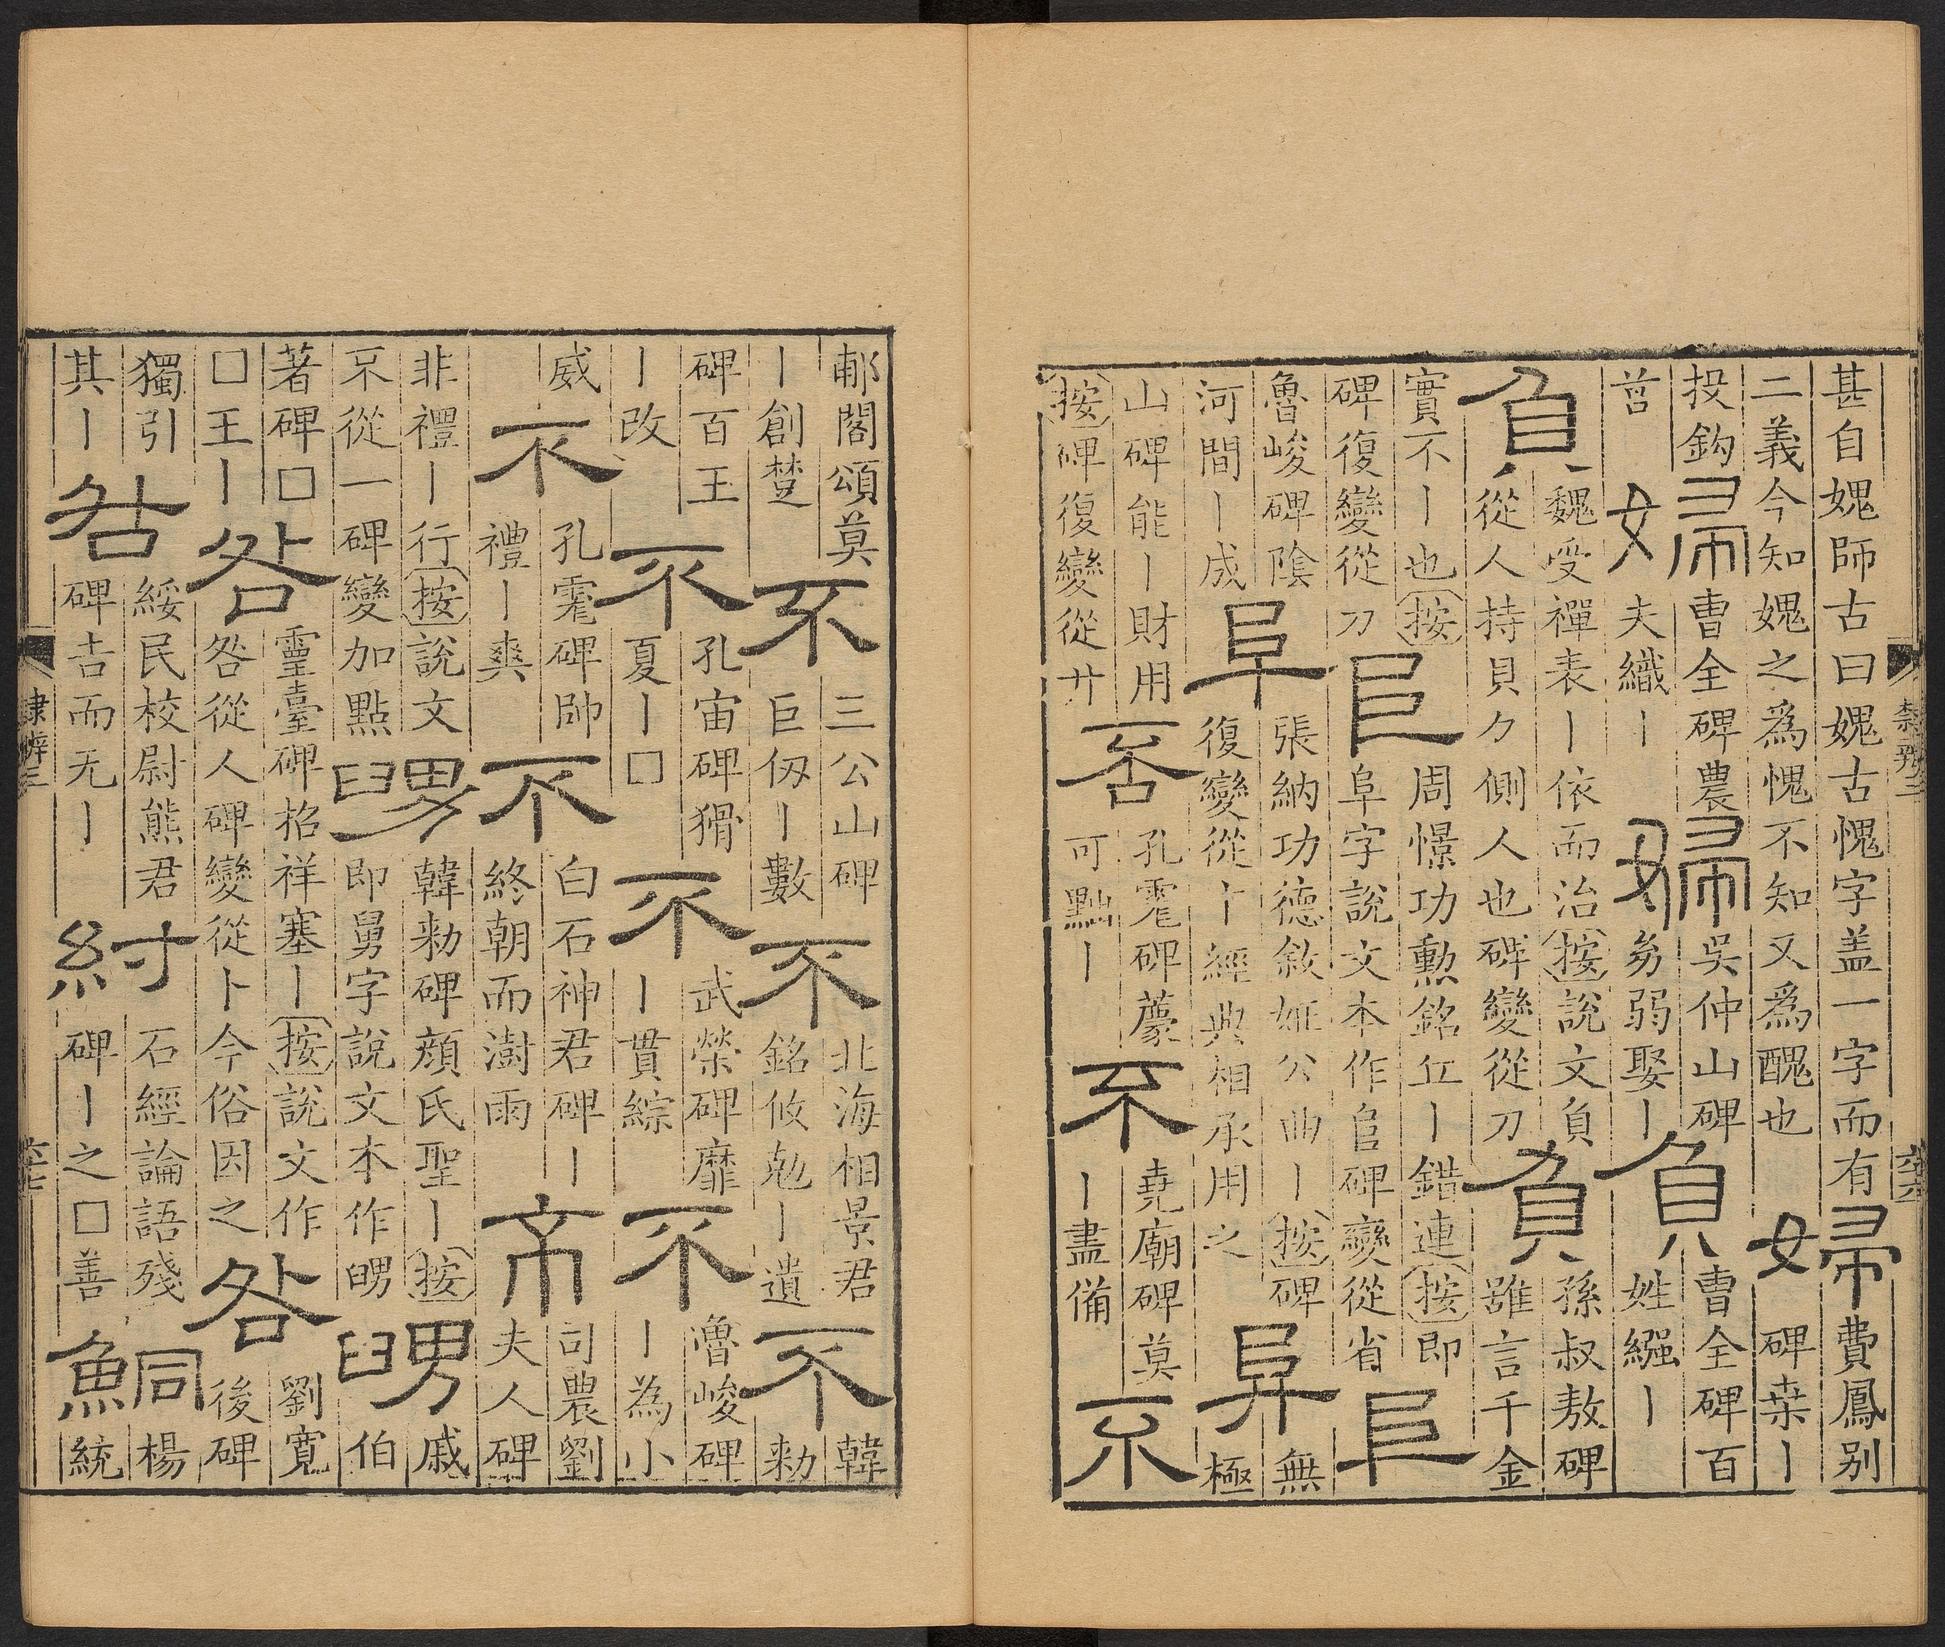 甚自媿師古曰媿古愧字盖一字而有婦費鳳别
二義今知媿之爲愧不知又爲醜也碑桒丨
投鈎婦曹全碑農婦吳仲山碑負曹全碑百
莒夫織丨㛐弱娶丨姓繦丨
負魏受禪表丨依而治按說文負負孫叔敖碑
從人持貝⺈側人也碑變從刀雖言千金
實不丨也按周憬功勲銘丘丨錯連按即
碑復變從刀𨸏阜字說文本作𨸏碑變從省𨸏
魯峻碑陰阜張納功德敘姬公曲丨按碑無
河間丨成復變從十經典相承用之極
山碑能丨財用否孔霍碑蘉不堯廟碑莫不
按碑復變從廾可黜丨丨盡備
郙閣頌莫不三公山碑不北海相景君不韓
丨創楚巨仭丨數銘攸勊丨遺勑
碑百王不孔宙碑猾不武榮碑靡不魯峻碑
丨改夏丨□丨貫綜丨為小
威不孔霍碑帥不白石神君碑丨帝司農劉
禮丨爽終朝而澍雨夫人碑
非禮丨行按說文舅韓勑碑顔氏聖丨按舅戚
不從一碑變加點即舅字說文本作𦥑男伯
著碑□咎靈臺碑招祥塞丨按說文作咎劉寬
□王丨咎從人碑變從卜今俗因之後碑
獨引咎綏民校尉熊君紂石經論語殘鮦楊
其丨碑吉而无丨碑丨之□善統
隸辨三
六十六
隸辨三
六十七